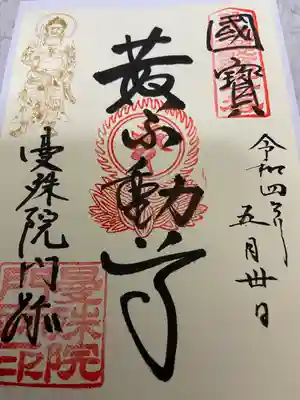 國寶
令和四年
五月卅日
黄不動尊
曼殊院門跡
曼殊院
門跡印